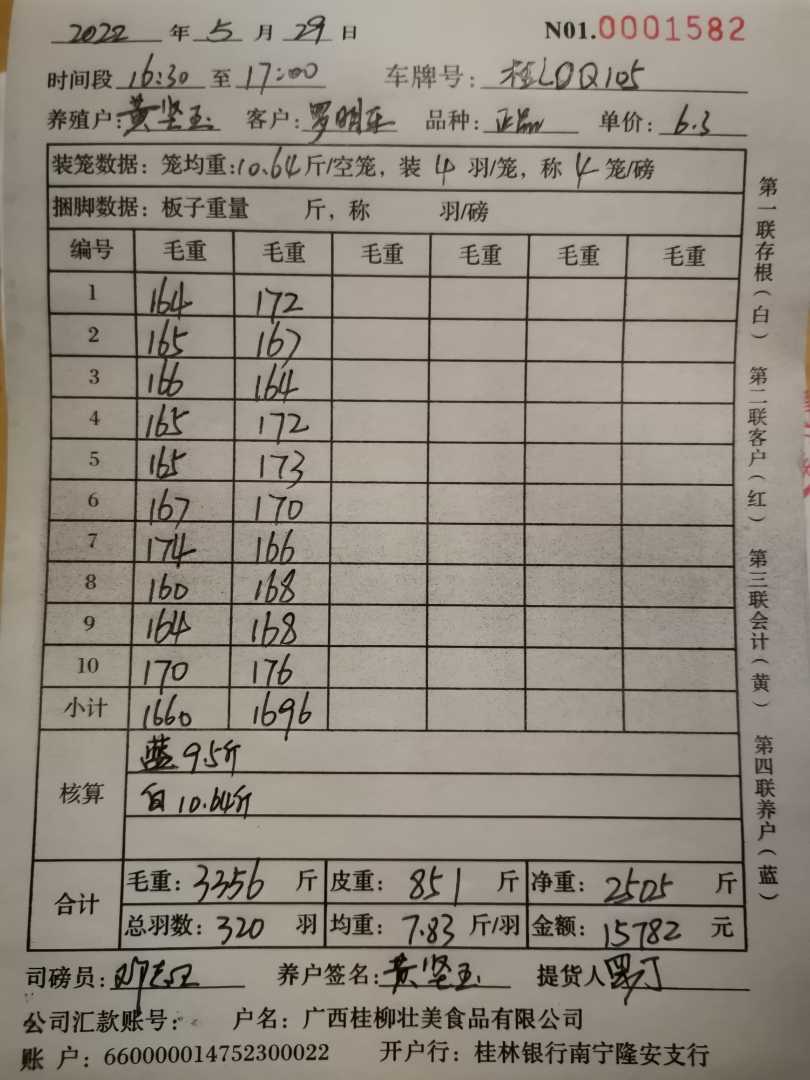 2022 年 5 月 29 日 N01.0001582
时间段 16:30 至 17:00 车牌号: 桂L0Q105
养殖户: 黄坚玉 客户: 罗明乐 品种: 正品 单价: 6.3
装笼数据: 笼均重: 10.64 斤/空笼, 装 4 羽/笼, 称 4 笼/磅
捆脚数据: 板子重量 斤, 称 羽/磅
编号 毛重 毛重 毛重 毛重 毛重 毛重
1 164 172
2 165 167
3 166 164
4 165 172
5 165 173
6 167 170
7 174 166
8 160 168
9 164 168
10 170 176
小计 1660 1696
核算 蓝 9.5斤
白 10.64斤
合计 毛重: 3356 斤 皮重: 851 斤 净重: 2505 斤
总羽数: 320 羽 均重: 7.83 斤/羽 金额: 15782 元
司磅员: 养户签名: 黄坚玉 提货人
公司汇款账号: 户名: 广西桂柳壮美食品有限公司
账 户: 660000014752300022 开户行: 桂林银行南宁隆安支行
第一联存根(白) 第二联客户(红) 第三联会计(黄) 第四联养户(蓝)